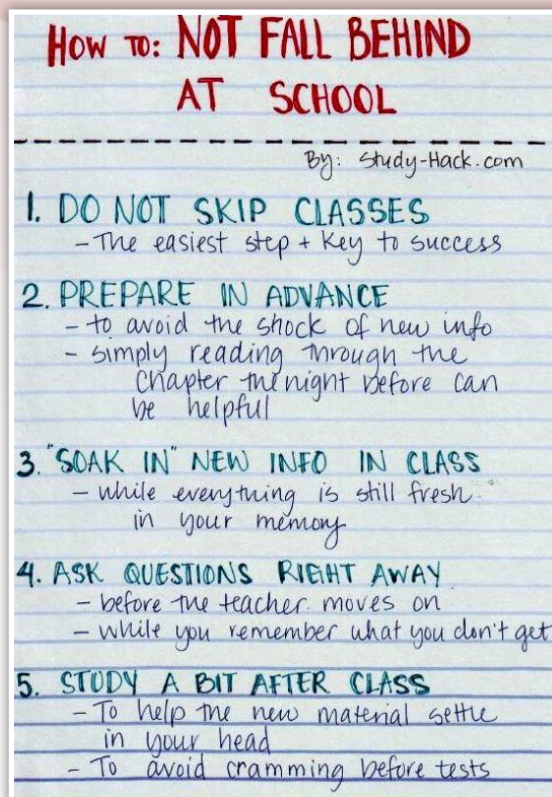 HOW TO: NOT FALL BEHIND
AT SCHOOL
By: Study-Hack.com
1. DO NOT SKIP CLASSES
- The easiest step + key to success
2. PREPARE IN ADVANCE
- to avoid the shock of new info
- simply reading through the
chapter the night before can
be helpful
3. "SOAK IN" NEW INFO IN CLASS
- while everything is still fresh
in your memory
4. ASK QUESTIONS RIGHT AWAY
- before the teacher moves on
- while you remember what you don't get
5. STUDY A BIT AFTER CLASS
- To help the new material settle
in your head
- To avoid cramming before tests